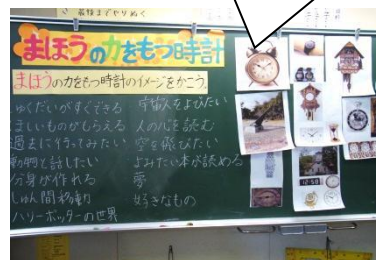 最後までやりぬく
まほうの力をもつ時計
まほうの力をもつ時計のイメージをかこう。
しゅくだいがすぐできる
ほしいものがもらえる
過去に行ってみたい
動物と話したい
分身が作れる
しゅん間移動
ハリーポッターの世界
宇宙人をよびたい
人の心を読む
空を飛びたい
よみたい本が読める
夢
好きなもの
12:58